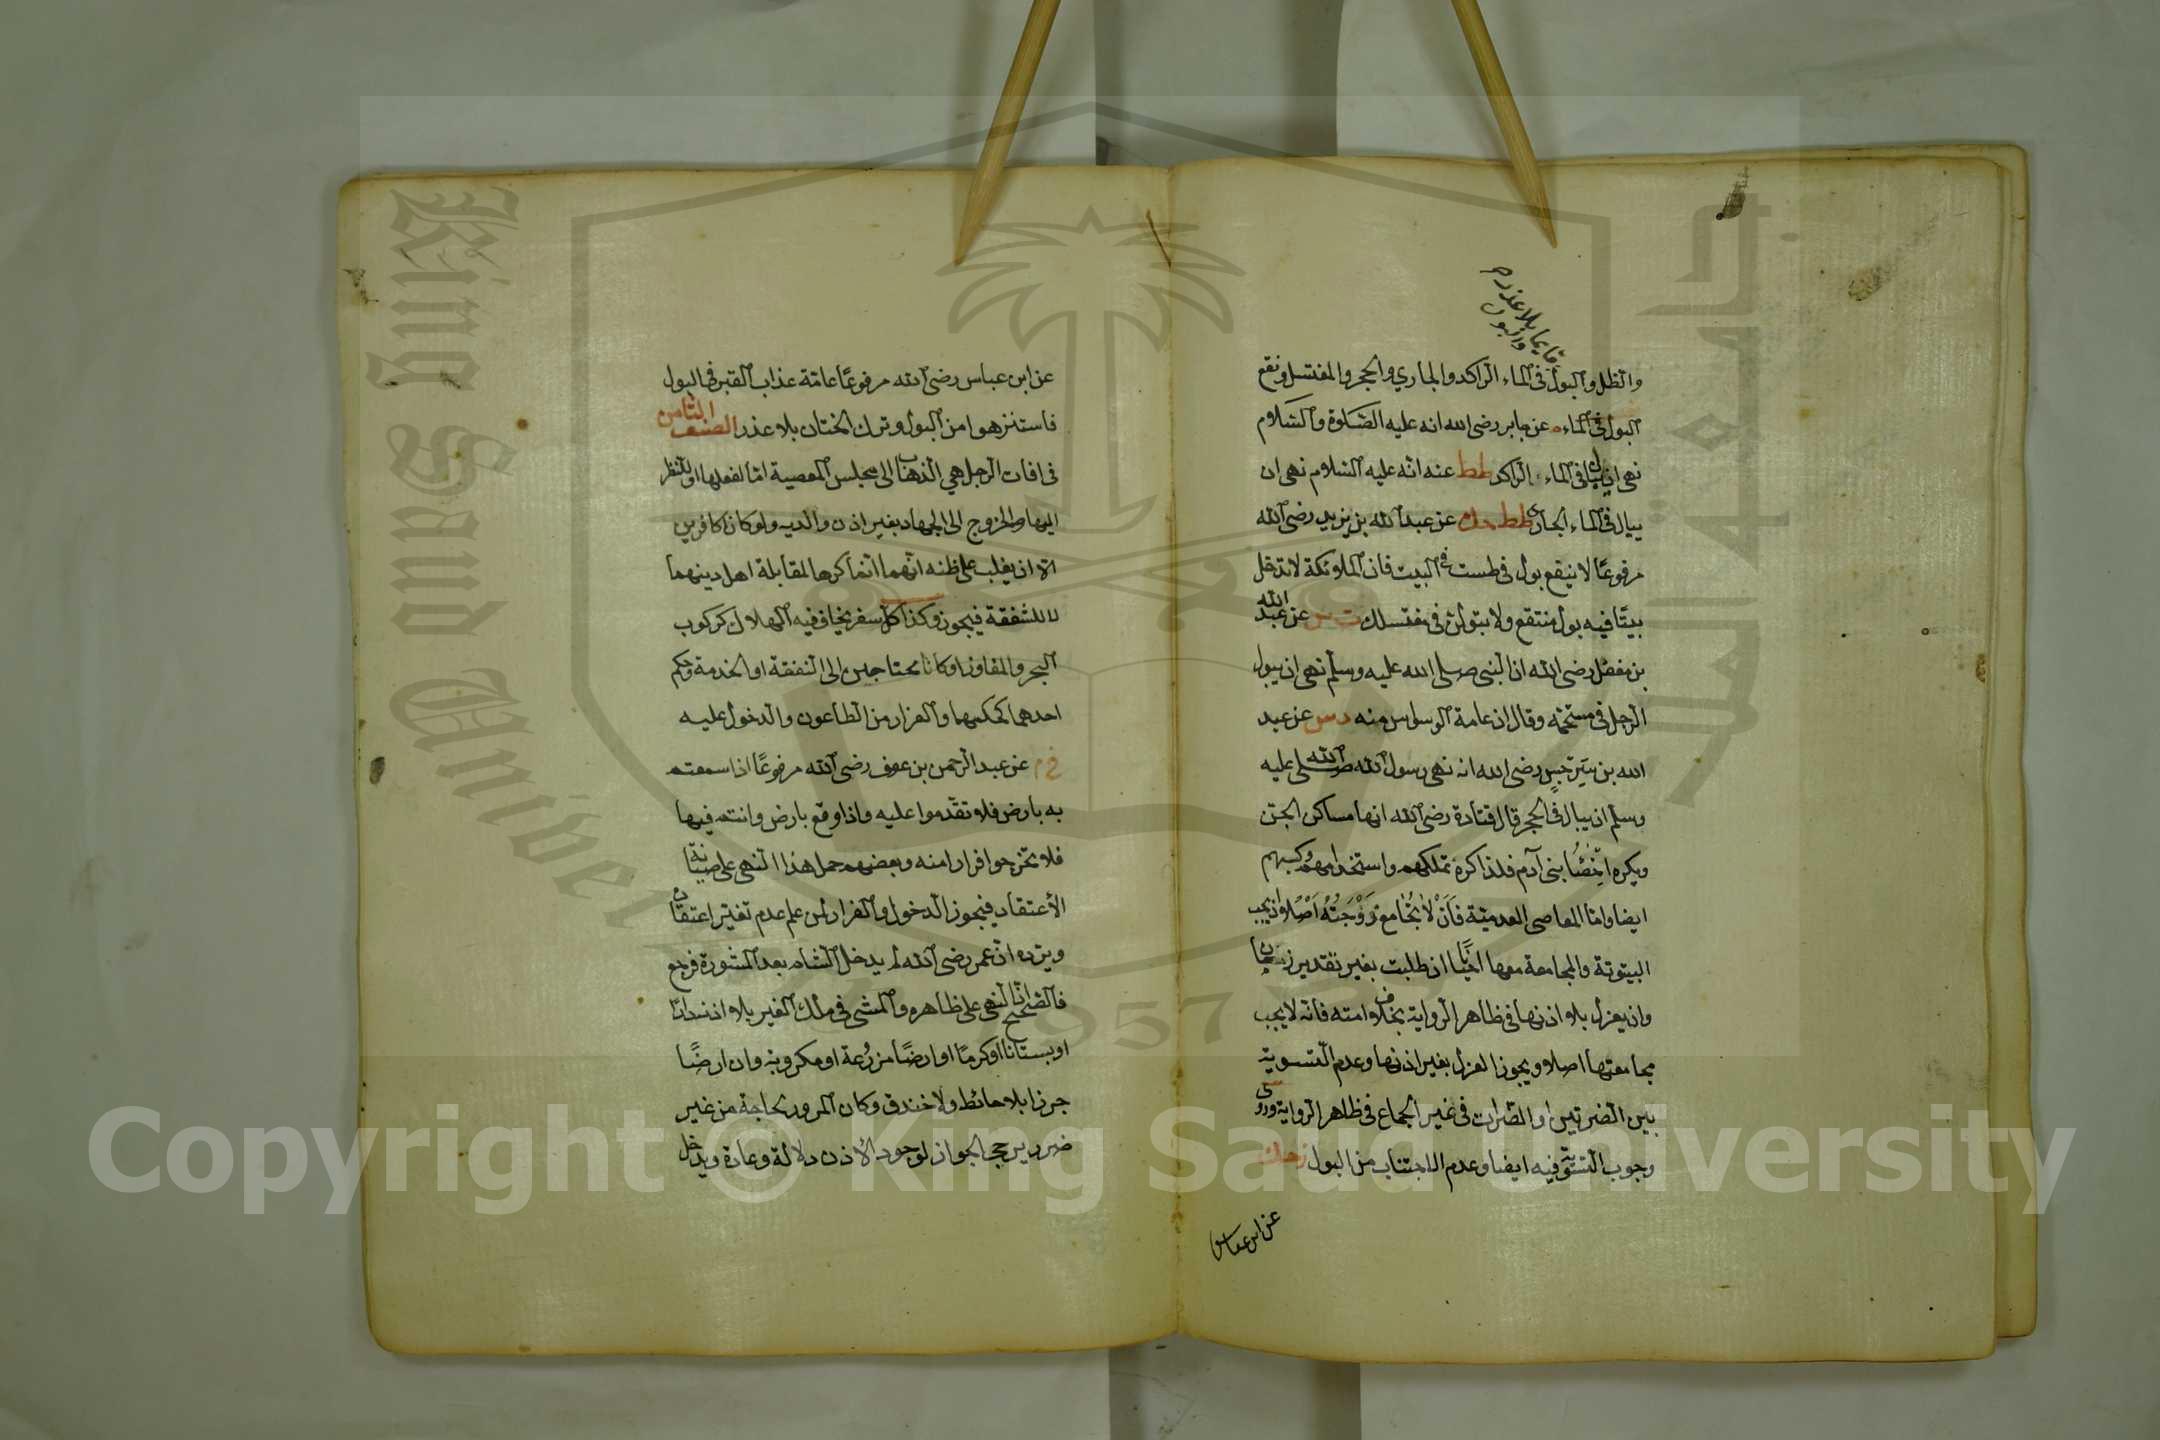 قايما بلا عذر م
والبول
والظل والبول فى الماء الراكد والجاري والحجر والمغتسل ونقع
البول فى الماء م عن جابر رضى الله انه عليه الصلوة والسلام
نهى ان يبال فى الماء الراكد طط عنه انه عليه السلام نهى ان
يبال فى الماء الجارى طط حك عن عبد الله بن يزيد رضى الله
مرفوعًا لا ينقع بول فى طست فى البيت فان الملوئكة لا تدخل
بيتًا فيه بول منتقع ولا تبولن فى مغتسلك ت س عن عبد الله
بن مغفل رضى الله ان النبى صلى الله عليه وسلم نهى ان يبول
الرجل فى مستحمه وقال ان عامة الوسواس منه د س عن عبد
الله بن سرجس رضى الله انه نهى رسول الله صلى الله عليه
وسلم ان يبال فى الحجر قال قتادة رضى الله انها مساكن الجن
ويكره اخصا بنى آدم فلذا كره تملكهم واستخدامهم وكسبهم
ايضا واما المعاصى العدمية فان لا يجامع زوجته اصلا وان يجب
البيتوتة والمجامعة معها احيانا ان طلبت بغير تقدير زمان
وان يعزل بلا اذنها فى ظاهر الرواية بخلاف امته فانه لا يجب
مجامعتها اصلا ويجوز العزل بغير اذنها وعدم التسوية
بين الضرتين او الضرات فى غير الجماع فى ظاهر الرواية وروى
وجوب التسوية فيه ايضا وعدم الاجتناب من البول ز حك
عن ابن عباس
عن ابن عباس رضى الله مرفوعًا عامة عذاب القبر فى البول
فاستنزهوا من البول وترك الختان بلا عذر الصنف الثامن
فى افات الرجل هي الذهاب الى مجلس المعصية اما لفعلها او للنظر
اليها والخروج الى الجهاد بغير اذن والديه ولو كانا كافرين
الا ان يغلب على ظنه انهما انما كرها لمقابلة اهل دينهما
لا للشفقة فيجوز وكذا كل سفر يخاف فيه الهلاك كركوب
البحر والمفاوز او كانا محتاجين الى النفقة او الخدمة وحكم
احدهما كحكمهما والفرار من الطاعون والدخول عليه
خ م عن عبد الرحمن بن عوف رضى الله مرفوعًا اذا سمعتم
به بارض فلا تقدموا عليه واذا وقع بارض وانتم فيها
فلا تخرجوا فرارا منه وبعضهم حمل هذا النهى على صيانة
الأعتقاد فيجوز الدخول والفرار لمن علم عدم تغير اعتقاده
ويرده ان عمر رضى الله لم يدخل الشام بعد المشورة فرجع
فالصحيح ان النهى على ظاهره والمشى فى ملك الغير بلا اذنه دارًا
او بستانًا او كرمًا او ارضًا مزرعة او مكروبة وان ارضًا
جرزا بلا حائط ولا خندق وكان المرور لحاجة من غير
ضرر يرجى الجواز لوجود الاذن دلالة وعادة ويدخل
Copyright © King Saud University
King Saud University
1957